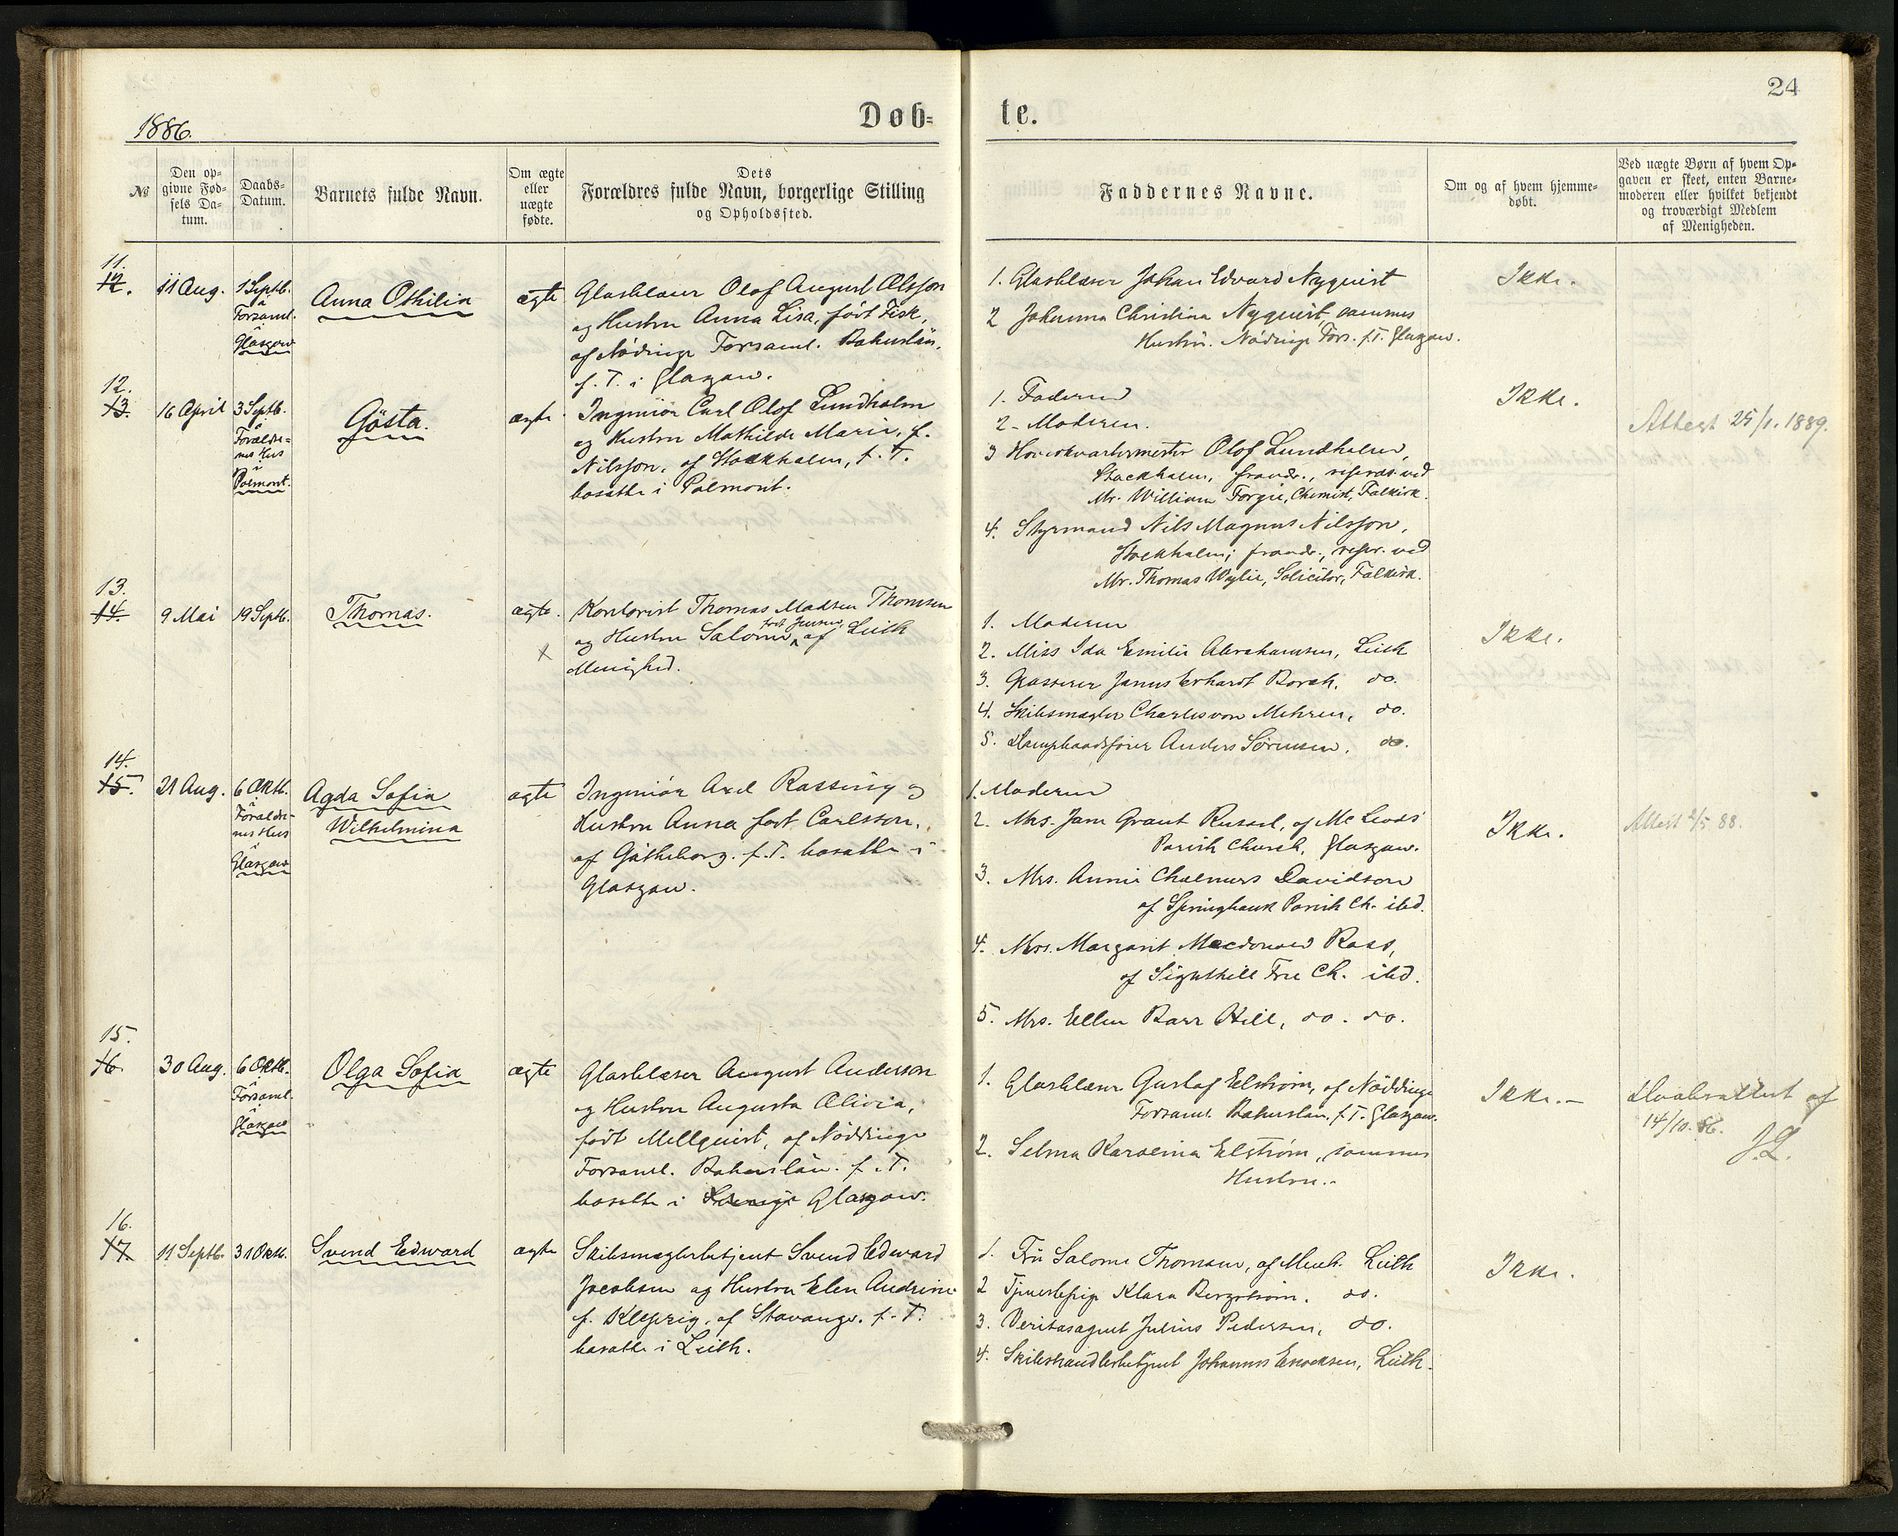 24
1886.
Døb-
te.
No
Den op-
givne Fød-
sels Da-
tum.
Daabs-
Datum.
Barnets fulde Navn.
Om ægte
eller
uægte
fødte.
Dets
Forældres fulde Navn, borgerlige Stilling
og Opholdssted.
Faddernes Navne.
Om og af hvem hjemme-
døbt.
Ved uægte Børn af hvem Op-
gaven er skeet, enten Barne-
moderen eller hvilket bekjendt
og troværdigt Medlem
af Menigheden.
11.
12.
11 Aug.
1 Septb.
i
Forsaml.
i
Glasgow
Anna Othilia
ægte
Glasblæser Olof August Olsson
og Hustru Anna Lisa, født Fisk,
af Nødinge Forsaml. Bahuslän,
f. T. i Glasgow.
1. Glasblæser Johan Edvard Nyquist
2 Johanna Christina Nyquist, sammes
Hustru. Nødinge Fors. f.T. Glasgow.
Ikke.
12.
13.
16 April
3 Septb.
i
Forældre-
nes Hus
i
Polmont.
Gösta.
ægte
Ingeniør Carl Olof Lundholm
og Hustru Mathilde Maria, f.
Nilsson, af Stockholm, f. T.
bosatte i Polmont.
1. Faderen
2. Moderen.
3 Hovedkvartermester Olof Lundholm,
Stockholm, fravær., repræs. ved
Mr. William Forgie, Chemist, Falkirk.
4. Styrmand Nils Magnus Nilsson,
Stockholm; fravær., repr. ved
Mr. Thomas Wylie, Solicitor, Falkirk.
Ikke.
Attest 25/1. 1889.
13.
14.
9 Mai
19 Septb.
Thomas.
ægte.
x
Kontorist Thomas Madsen Thomsen
og Hustru Salome født Jensen, af Leith
Menighed.
1. Moderen
2. Miss Ida Emilie Abrahamsen, Leith
3. Grosserer Janus Erhardt Borch, do.
4. Skibsmægler Charles von Mehren, do.
5. Dampbaadsfører Anders Sørensen, do.
Ikke.
14.
15.
21 Aug.
6 Oktb.
i
Forældre-
nes Hus
i
Glasgow
Agda Sofia
Wilhelmina
ægte
Ingeniør Axel Rassing og
Hustru Anna født Carlsson,
af Gøtheborg. f.T. bosatte i
Glasgow.
1. Moderen
2. Mrs. Jane Grant Russel, of Mc Leods
Parish Church, Glasgow.
3. Mrs. Annie Chalmers Davidson
of Springbank Parish Ch. ibd.
4. Mrs. Margaret Macdonald Ross,
of Sighthill Free Ch. ibd.
5. Mrs. Ellen Barr Hill, do. do.
Ikke.
Attest 2/5 88.
15.
16.
30 Aug.
6 Oktb.
i
Forsaml.
i
Glasgow
Olga Sofia
ægte
Glasblæser August Anderson
og Hustru Augusta Olivia,
født Mellquist, af Nöddinge
Forsaml. Bahuslän. f. T.
bosatte i Glasgow.
1. Glasblæser Gustaf Elström, af Nöddinge
Forsaml. Bahuslän, f. T. Glasgow.
2. Selma Karolina Elström, sammes
Hustru.
Ikke.
Daabsattest af
14/10. 86.
16.
17.
11 Septb.
31 Oktb.
Svend Edward
ægte
Skibsmæglerbetjent Svend Edward
Jacobsen og Hustru Elen Andrine
f. Kleppig, af Stavanger. f. T.
bosatte i Leith.
1. Fru Salome Thomsen, af Menh. Leith
2 Tjenestepige Klara Bergström. do.
3. Veritasagent Julius Pedersen, do.
4. Skibshandlerbetjent Johannes Enocksen, Leith.
Ikke.